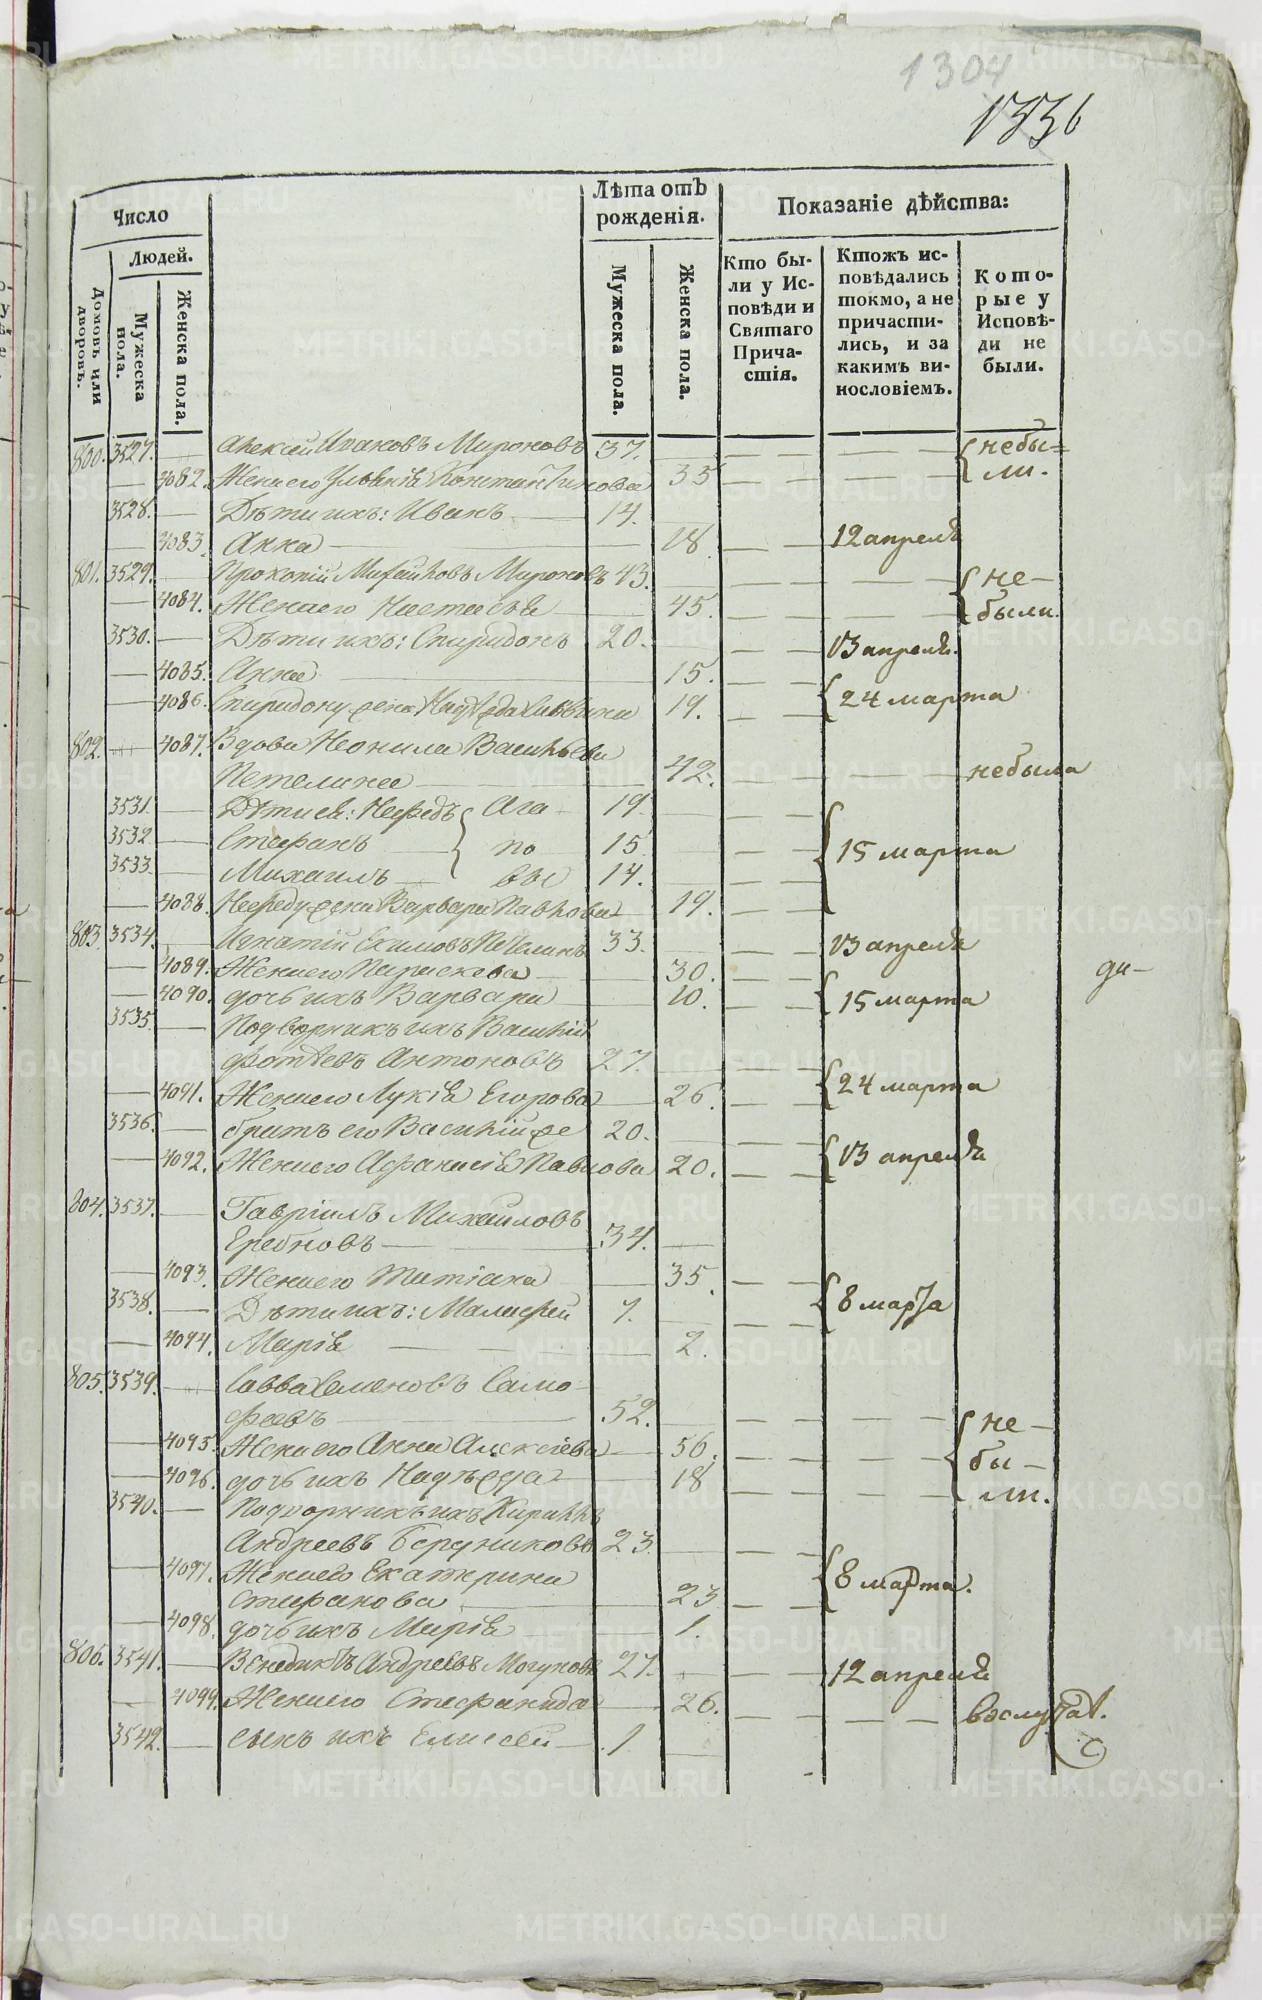 1304
1336
Число
Людей.
Домовъ или дворовъ.
Мужеска пола.
Женска пола.
Лѣта отъ рожденія.
Мужеска пола.
Женска пола.
Показаніе дѣйства:
Кто были у Исповѣди и Святаго Причастія.
Ктожъ исповѣдались токмо, а не причастились, и за какимъ винословіемъ.
Которые у Исповѣди не были.
800. 3527. — Алексей Ивановъ Мироновъ 37. — небы=
— 4082. Жена его Улья­нія Константинова 35 — ли.
3528. — Дѣти ихъ: Иванъ — 14.
— 4083. Анна — 18. — 12 апреля
801. 3529. — Прокопій Михайловъ Мироновъ 43. — не—
— 4084. Жена его Настасья — 45. — были.
3530. — Дѣти ихъ: Спиридонъ 20. — 13 апреля.
— 4085. Анна — 15.
— 4086. Спиридону жена Надежда Саввина 19. — 24 марта
802. — 4087. Вдова Неонила Васильева
Петелинаа — 42. — небыла
3531. — Дѣти ея: Нефедъ 19
3532 — Стефанъ — 15
3533 — Михаилъ — 14. — 15 марта
— 4088. Нефеду жена Варвара Павлова 19.
803. 3534. — Игнатій Екимовъ Петелинъ 33. — 13 апреля
— 4089. Жена его Параскева — 30. ди—
— 4090. дочь ихъ Варвара — 10. — 15 марта
3535 — Подворникъ ихъ Василій
Фотѣевъ Антоновъ 27.
— 4091. Жена его Лукія Егорова 26. — 24 марта
3536. — братъ его Василій же 20.
— 4092. Жена его Афанасія Павлова 20. — 13 апреля
804. 3537. — Гавріилъ Михайловъ
— 34.
— 4093. Жена его Татіана — 35.
3538. — Дѣти ихъ: 7. — 8 марта
— 4094. Марія — 2.
805. 3539. — Савва Семеновъ Само-
феевъ — 52. — не—
— 4095. Жена его Анна Алексіева — 56. бы—
— 4096. дочь ихъ Надежда — 18 — ли.
3540. — Подворникъ ихъ Кириллъ
Андреевъ Бердниковъ 23.
— 4097. Жена его Екатерина — 8 марта.
Стефанова — 23
— 4098. дочь ихъ Марія — 1.
806. 3541. — Венедиктъ Андреевъ Могуновъ 27. — 12 апреля
— 4099. Жена его Стефанида — 26.
3542. — сынъ ихъ Елисей — 1
METRIKI.GASO-URAL.RU